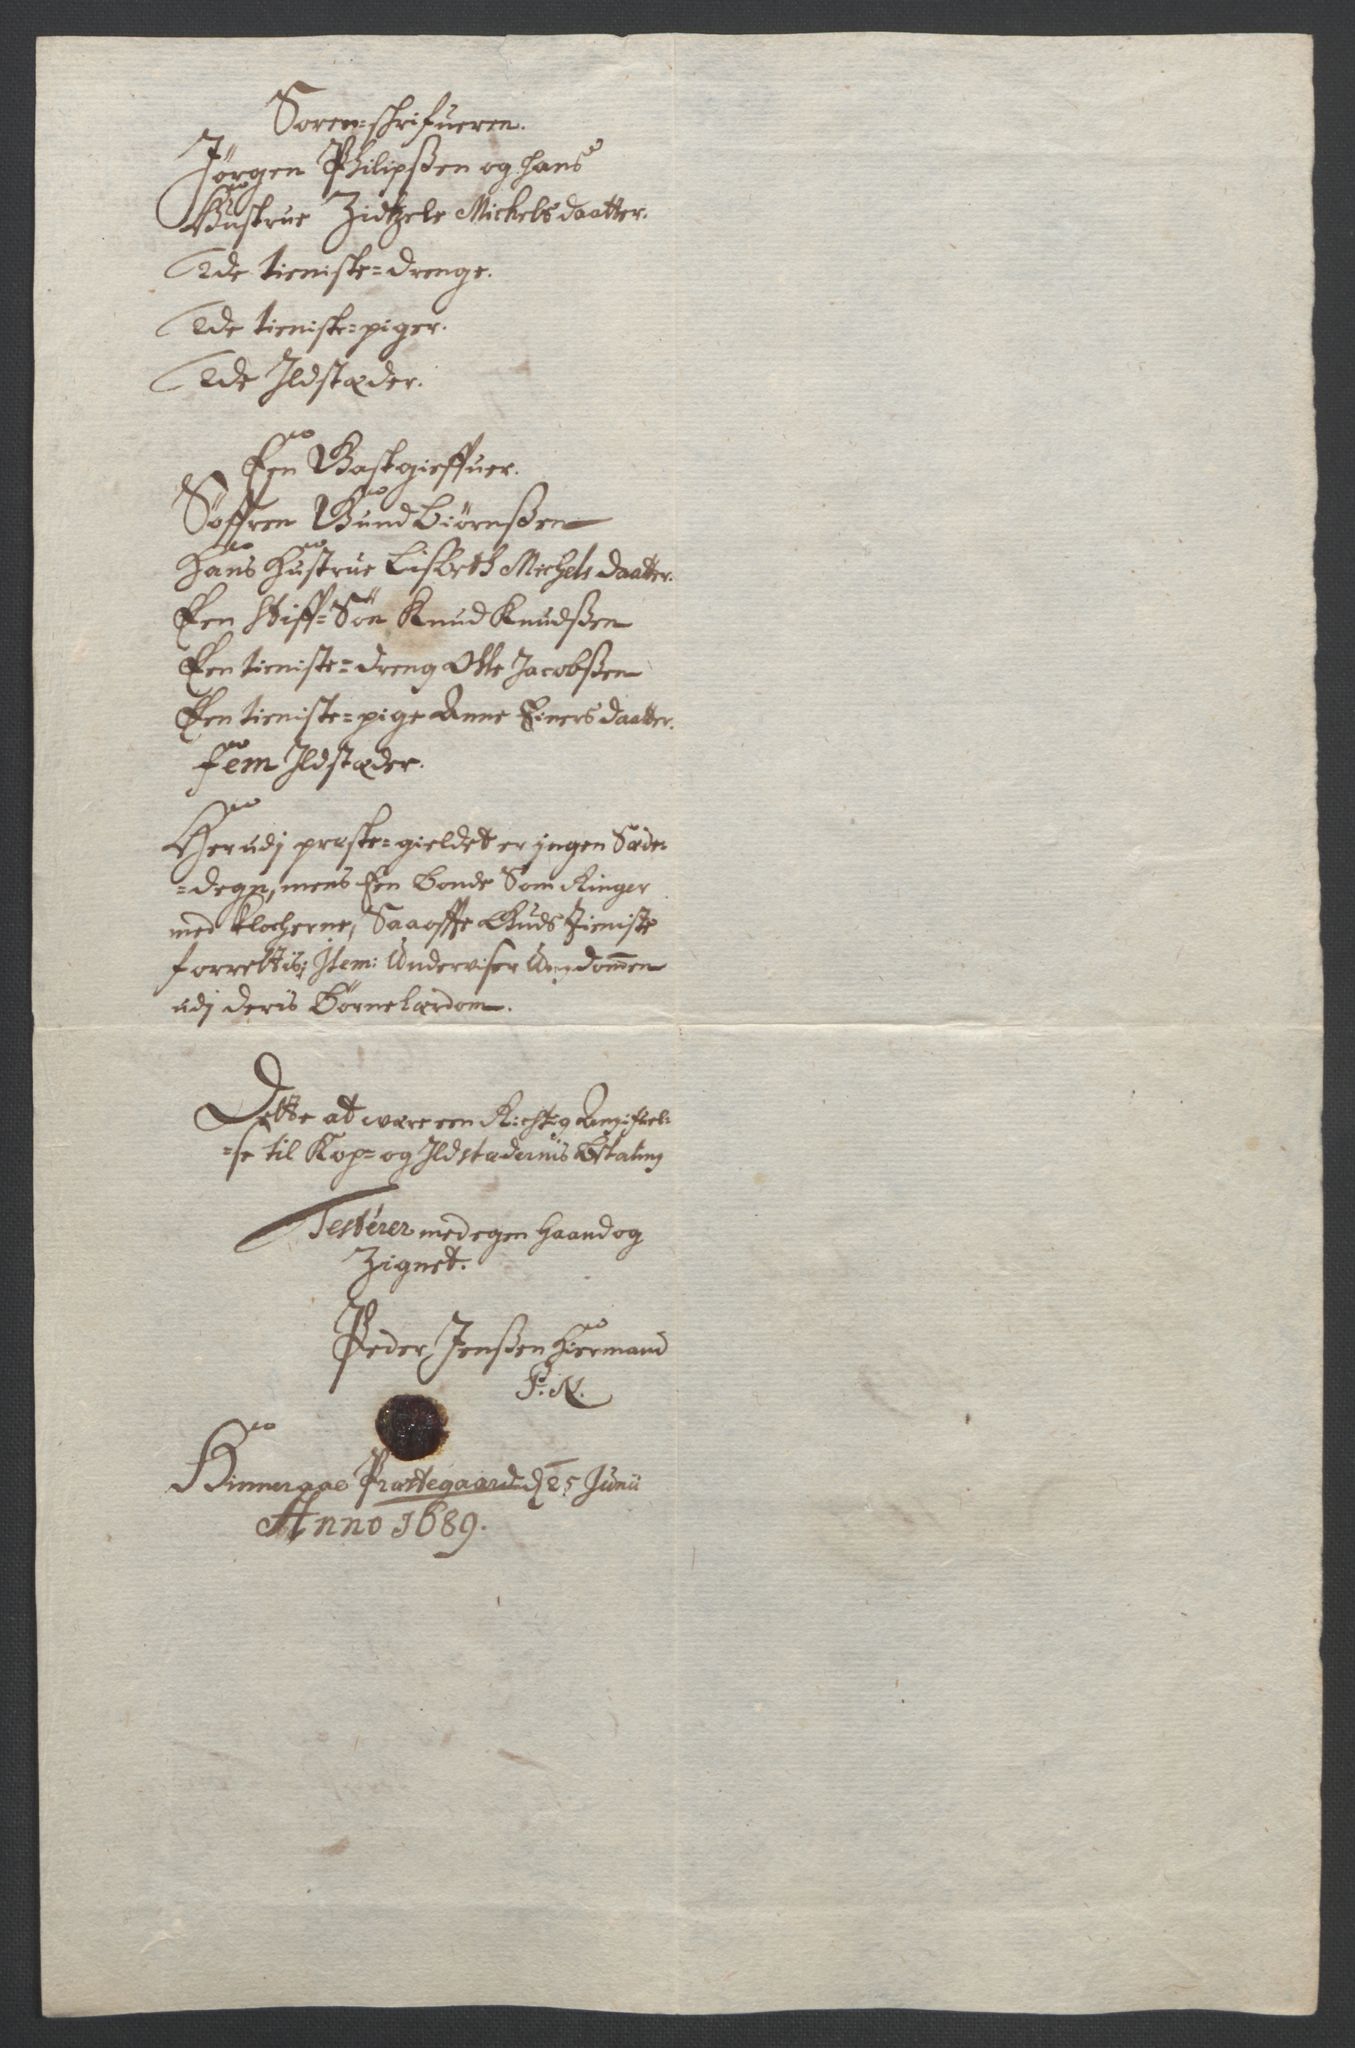 Soren-schrifueren.
Jørgen Philipßen og hans
Hustrue Zidtzele Michelsdaatter.
2de tieniste=drenge.
2de tieniste=piger.
2de Ildstæder.
Een Gastgieffuer.
Søffren Gundbiørnßen
Hans Hustrue Lisbeth Michelsdaatter.
Een Stiff=Søn Knud Knudßen
Een tieniste=dreng Olle Jacobßen
Een tieniste=pige Anne Einersdaatter.
fem Ildstæder.
Herudj præste=gieldet er jngen Sæde-
=degn, mens Een Bonde Som Ringer
med klocherne, Saaoffte Guds Tieniste
forrettis; Item: Underviser Ungdommen
udj deris Børnelærdom.
Dette at være een Richtig Angifuel-
=se til Kop= og Ildstædernis Betaling
Testerer med egen Haand og
Zignet.
Peder Jenßen Hiermand
P: N.
Hinneraae Præstegaard d 25 Junii
Anno 1689.